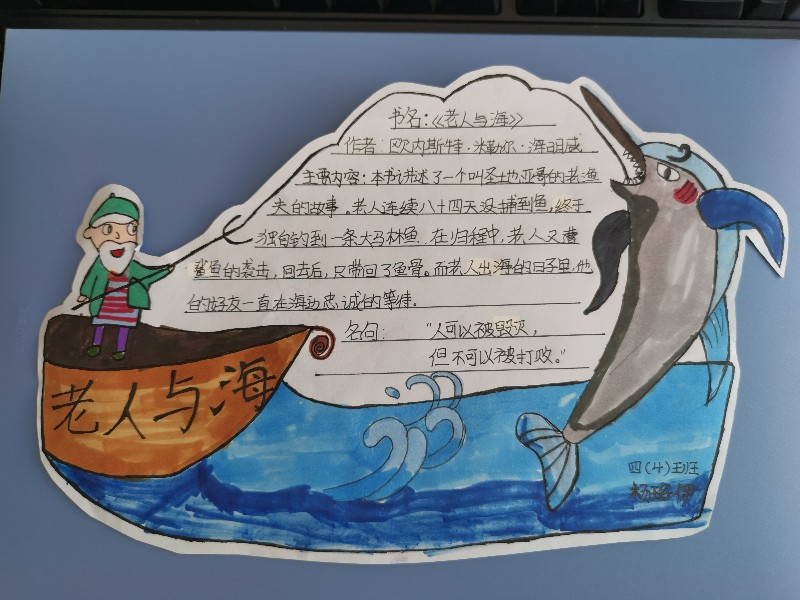 书名:《老人与海》
作者:欧内斯特·米勒尔·海明威
主要内容:本书讲述了一个叫圣土地亚哥的老渔
夫的故事。老人连续八十四天没捕到鱼,终于
独自钓到一条大马林鱼,在归程中,老人又遭
鲨鱼的袭击,回去后,只带回了鱼骨。而老人出海的日子里,他
的好友一直在海边忠诚的等待.
名句: "人可以被毁灭,
但不可以被打败。"
老人与海
四(4)班
杨珞伊